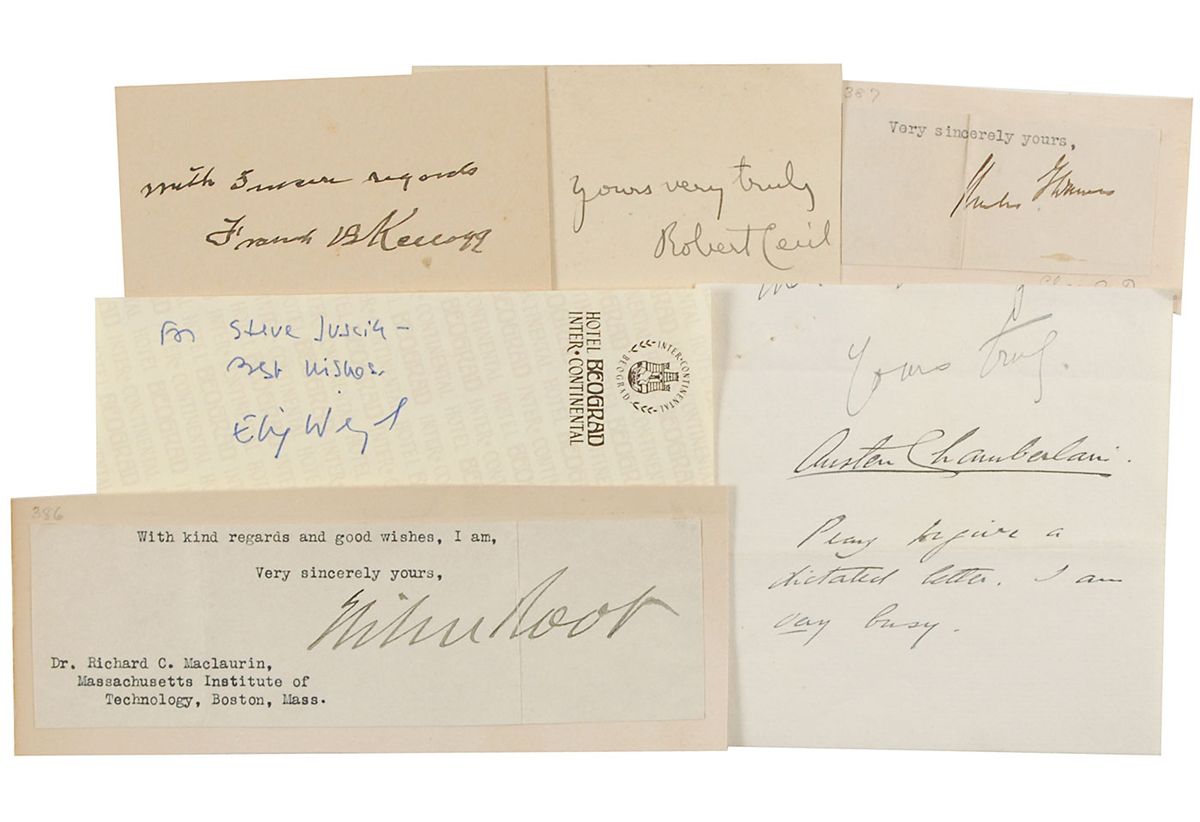 with sincere regards
Frank B Kellogg
Yours very truly
Robert Cecil
387
Very sincerely yours,
For Steve
Best wishes
HOTEL BEOGRAD
INTER·CONTINENTAL
INTER·CONTINENTAL
BEOGRAD
Yours truly.
Austen Chamberlain.
Pray forgive a
dictated letter. I am
very busy.
386
With kind regards and good wishes, I am,
Very sincerely yours,
Elihu Root
Dr. Richard C. Maclaurin,
Massachusetts Institute of
Technology, Boston, Mass.